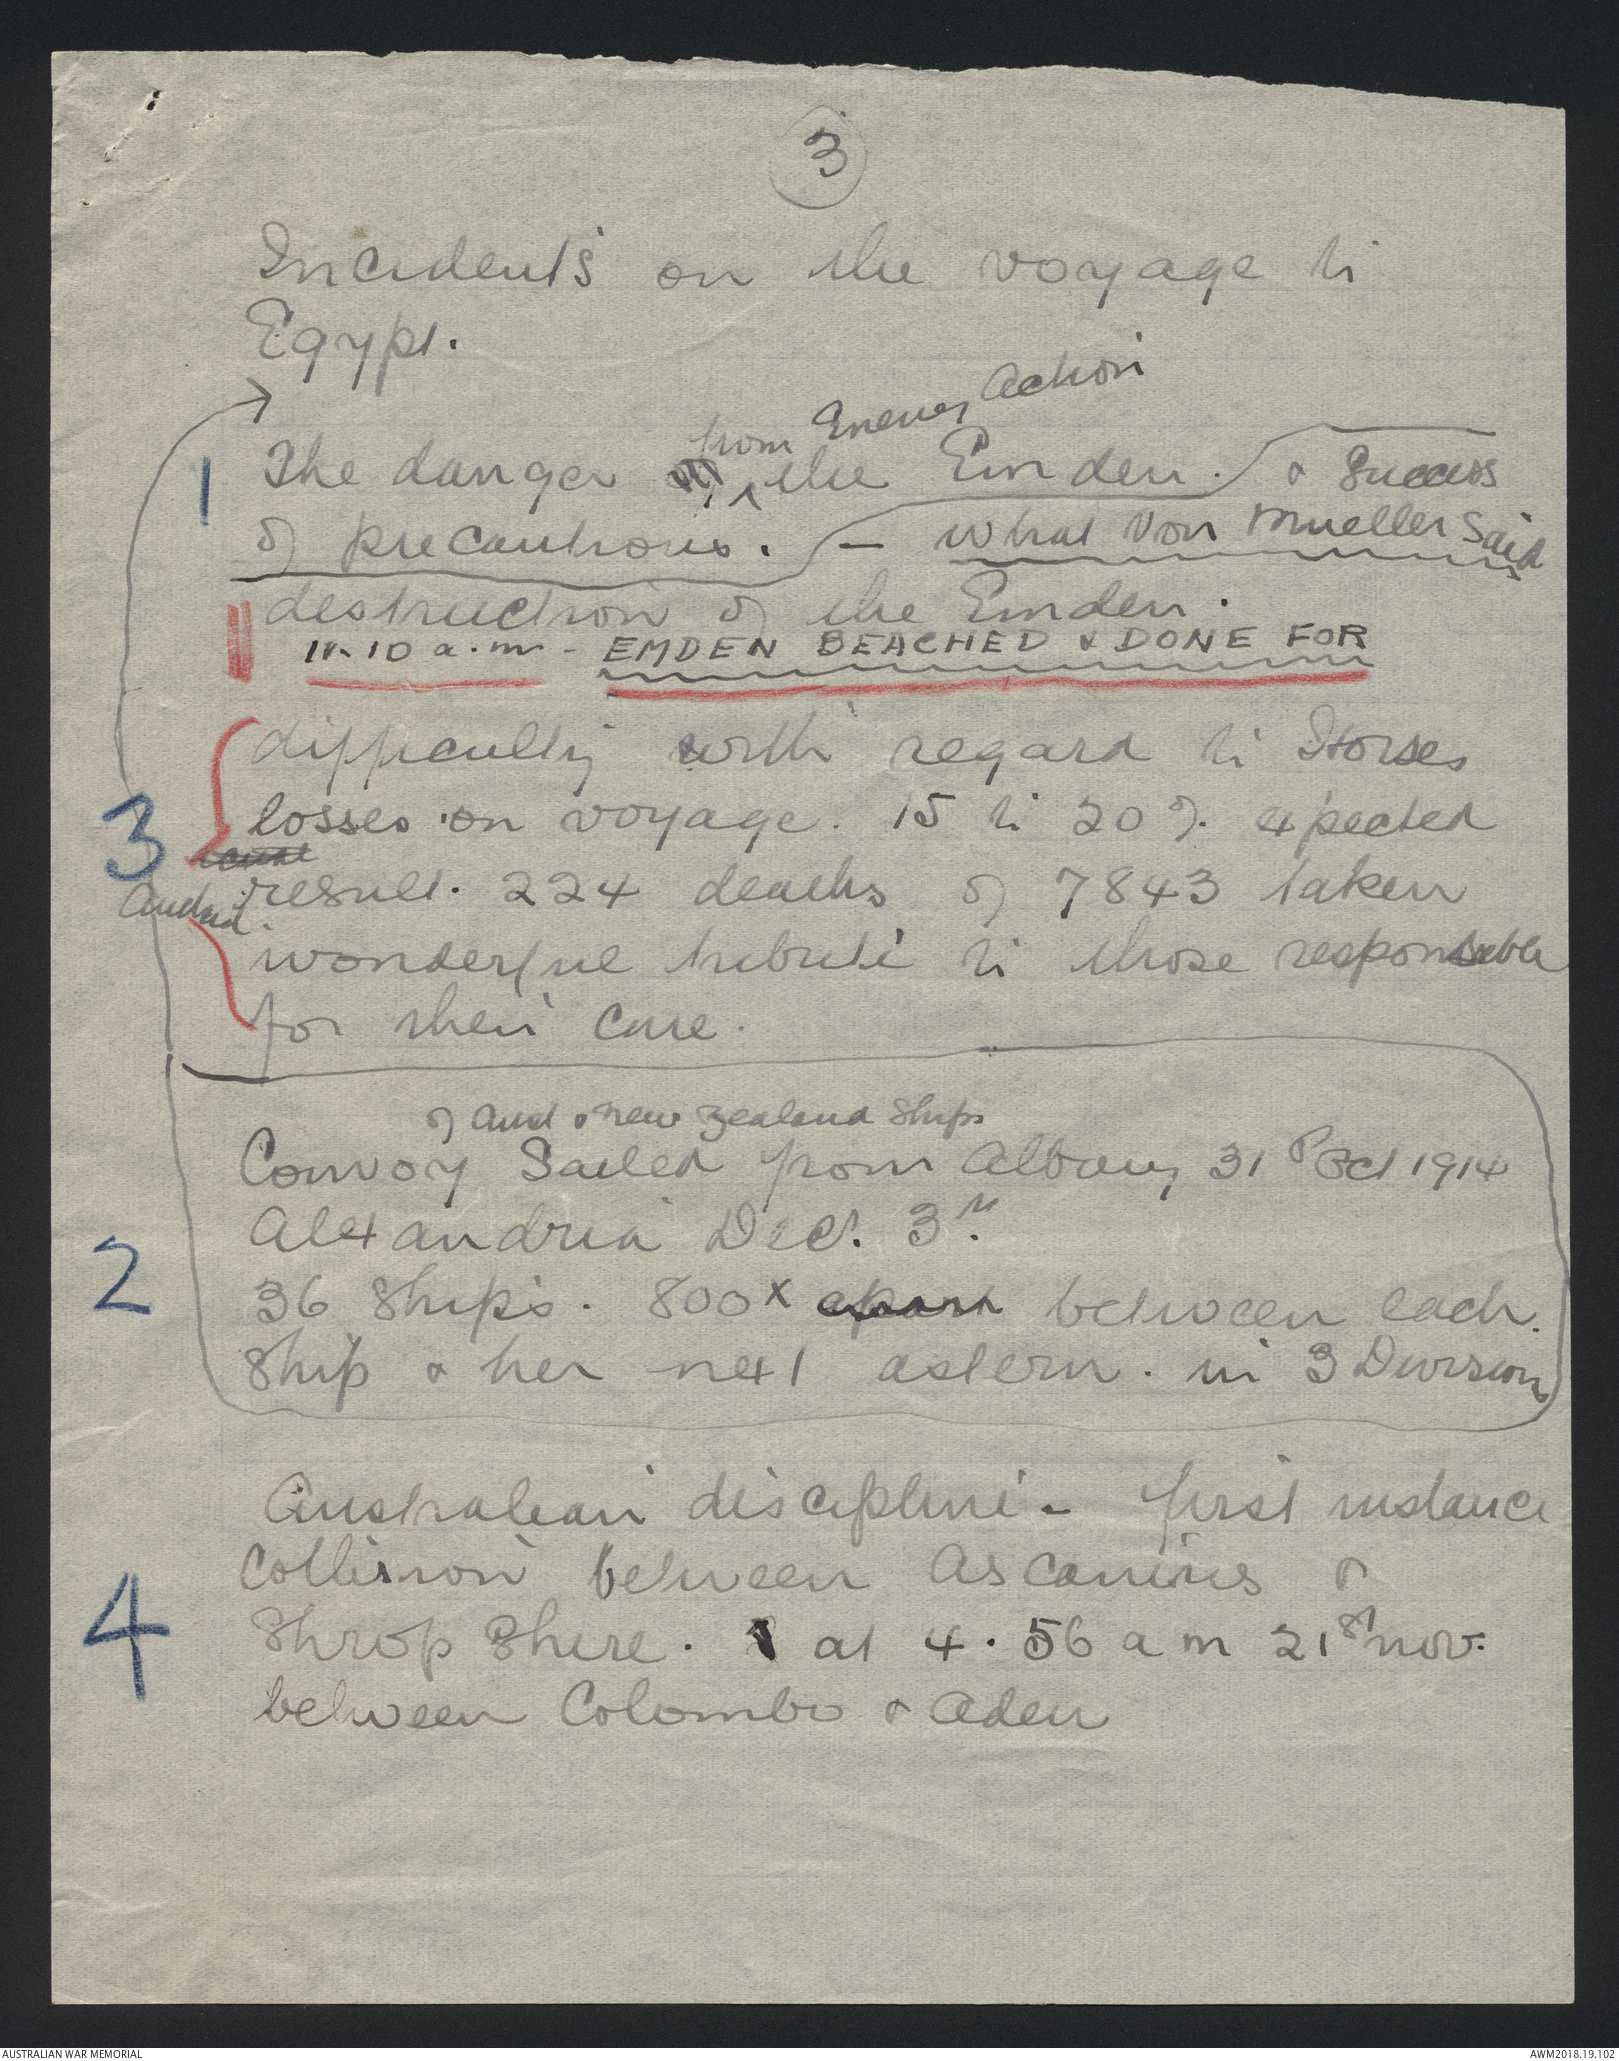 3
Incidents on the voyage to
Egypt.
from Enemy Action
1 The danger the Emden. & Success
of precautions. - What Von Mueller Said
destruction of the Emden.
11.10 a.m. - EMDEN BEACHED & DONE FOR
difficulty with regard to Horses
3 losses on voyage. 15 to 20% expected
result. 224 deaths of 7843 taken
wonderful tribute to those responsible
for their care.
of Aust & New Zealand Ships
Convoy Sailed from Albany 31st Oct 1914
Alexandria Dec. 3rd.
2 36 Ships. 800x apart between each
Ship & her next astern. in 3 Divisions
Australian discipline - first instance
Collision between Ascanius &
4 Shropshire. at 4.56 a m 21st Nov.
between Colombo & Aden
AUSTRALIAN WAR MEMORIAL
AWM2018.19.102